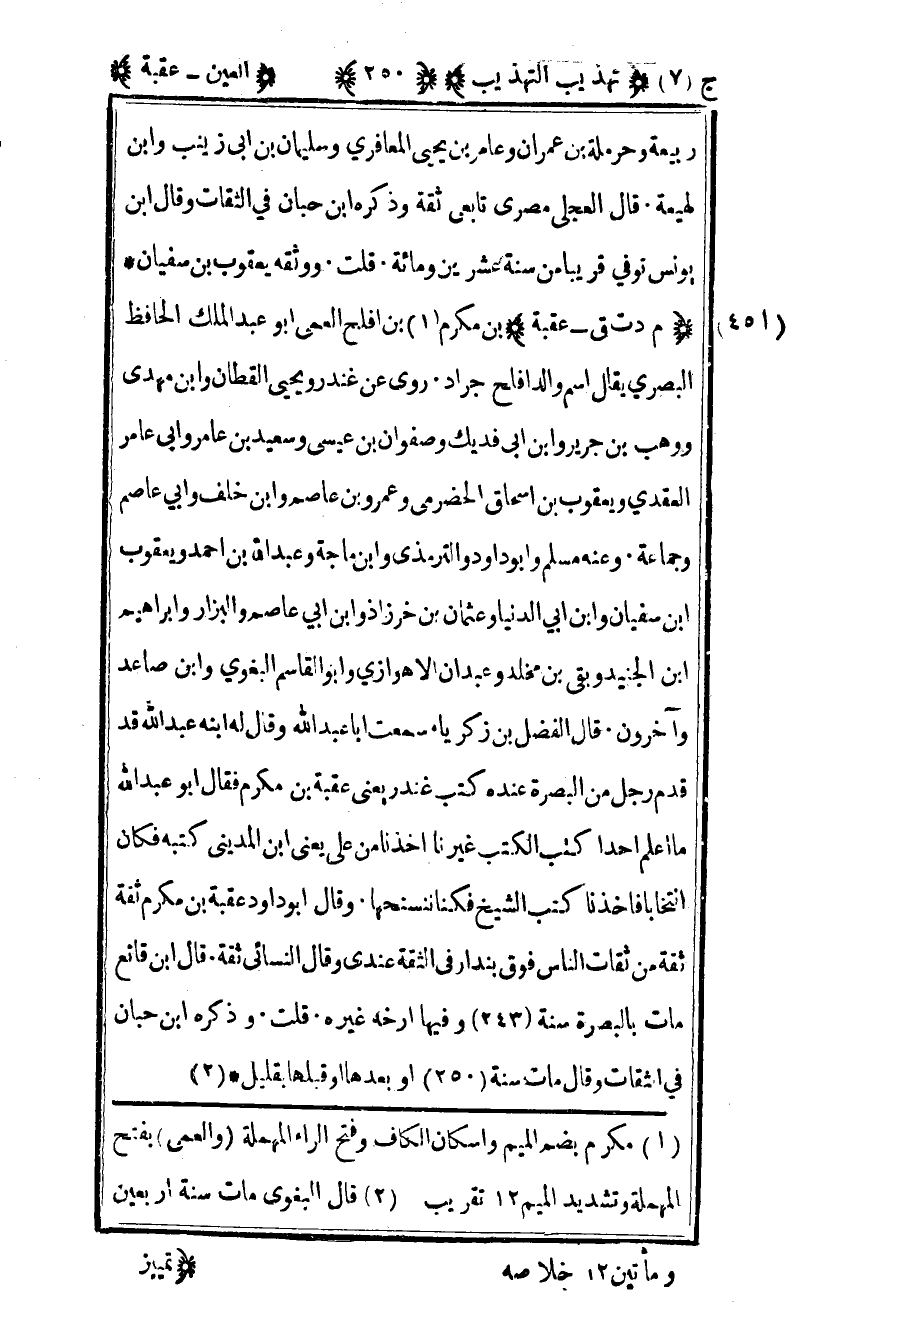 ج (٧) ﴿ تهذيب التهذيب ﴾ ﴿ ٢٥٠ ﴾ ﴿ العين ـ عقبة ﴾
ربيعة وحرملة بن عمران وعامر بن يحيى المعافري وسليمان بن ابى زينب وابن
لهيعة · قال العجلى مصرى تابعى ثقة وذكره ابن حبان في الثقات وقال ابن
يونس توفي قريبا من سنة عشرين ومائة · قلت · ووثقه يعقوب بن سفيان *
(٤٥١) ﴿ م د ت ق ـ عقبة ﴾ بن مكرم (١) بن افلح العمى ابو عبد الملك الحافظ
البصري يقال اسم والد افلح جراد · روى عن غندر ويحيى القطان وابن مهدى
ووهب بن جرير وابن ابى فديك وصفوان بن عيسى وسعيد بن عامر وابي عامر
العقدي ويعقوب بن اسحاق الحضرمى وعمرو بن عاصم وابن خلف وابي عاصم
وجماعة · وعنه مسلم وابو داود والترمذى وابن ماجة وعبد الله بن احمد ويعقوب
ابن سفيان وابن ابي الدنيا وعثمان بن خرزاذ وابن ابي عاصم والبزار وابراهيم
ابن الجنيد وبقى بن مخلد وعبدان الاهوازي وابو القاسم البغوي وابن صاعد
وآخرون · قال الفضل بن زكرياء سمعت ابا عبد الله وقال له ابنه عبد الله قد
قدم رجل من البصرة عنده كتب غندر يعنى عقبة بن مكرم فقال ابو عبد الله
ما اعلم احدا كتب الكتب غيرنا اخذنا من على يعنى ابن المدينى كتبه فكان
انتخابا فاخذنا كتب الشيخ فكنا ننسخها · وقال ابو داود عقبة بن مكرم ثقة
ثقة من ثقات الناس فوق بندار فى الثقة عندى وقال النسائى ثقة · قال ابن قانع
مات بالبصرة سنة (٢٤٣) وفيها ارخه غيره · قلت · وذكره ابن حبان
في الثقات وقال مات سنة (٢٥٠) او بعدها او قبلها بقليل * (٢)
(١) مكرم بضم الميم واسكان الكاف وفتح الراء المهملة (والعمى) بفتح
المهملة وتشديد الميم ١٢ تقريب (٢) قال البغوى مات سنة اربعين
ومأتين ١٢ خلاصه ﴿ تمييز